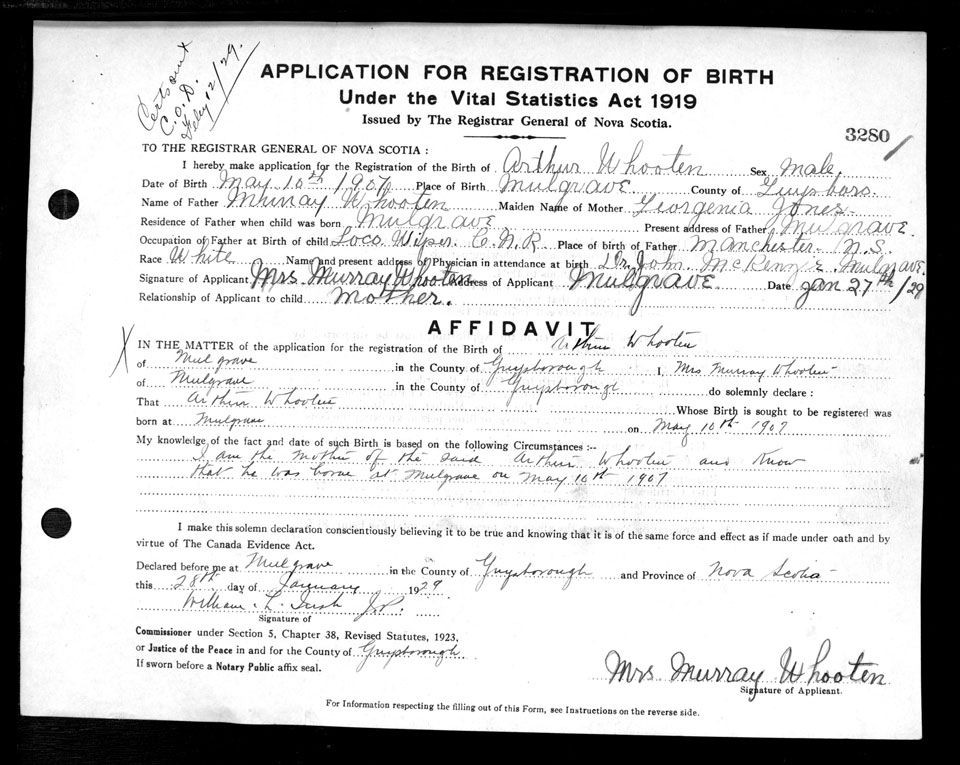 Cert sent
C.O.D.
Feby 12/29.
APPLICATION FOR REGISTRATION OF BIRTH
Under the Vital Statistics Act 1919
Issued by The Registrar General of Nova Scotia.
3280
TO THE REGISTRAR GENERAL OF NOVA SCOTIA :
I hereby make application for the Registration of the Birth of Arthur Whooten Sex Male,
Date of Birth May 10th 1907 Place of Birth Mulgrave County of Guysboro.
Name of Father Murray Whooten Maiden Name of Mother Georgenia Jones
Residence of Father when child was born Mulgrave Present address of Father Mulgrave.
Occupation of Father at Birth of child Loco. Wiper. C.N.R. Place of birth of Father Manchester. N.S.
Race White Name and present address of Physician in attendance at birth Dr. John McKenzie Mulgrave.
Signature of Applicant Mrs Murray Whooten Address of Applicant Mulgrave Date Jan 27th/29
Relationship of Applicant to child mother.
AFFIDAVIT
X IN THE MATTER of the application for the registration of the Birth of Arthur Whooten
of Mulgrave in the County of Guysborough I, Mrs Murray Whooten
of Mulgrave in the County of Guysborough do solemnly declare :
That Arthur Whooten Whose Birth is sought to be registered was
born at Mulgrave on May 10th 1907
My knowledge of the fact and date of such Birth is based on the following Circumstances :--
I am the mother of the said Arthur Whooten and Know
that he was borne at Mulgrave on May 10th 1907
I make this solemn declaration conscientiously believing it to be true and knowing that it is of the same force and effect as if made under oath and by
virtue of The Canada Evidence Act.
Declared before me at Mulgrave in the County of Guysborough and Province of Nova Scotia
this 28th day of January 1929.
William L. Irish J.P.
Signature of
Commissioner under Section 5, Chapter 38, Revised Statutes, 1923,
or Justice of the Peace in and for the County of Guysborough
If sworn before a Notary Public affix seal.
Mrs Murray Whooten
Signature of Applicant.
For Information respecting the filling out of this Form, see Instructions on the reverse side.